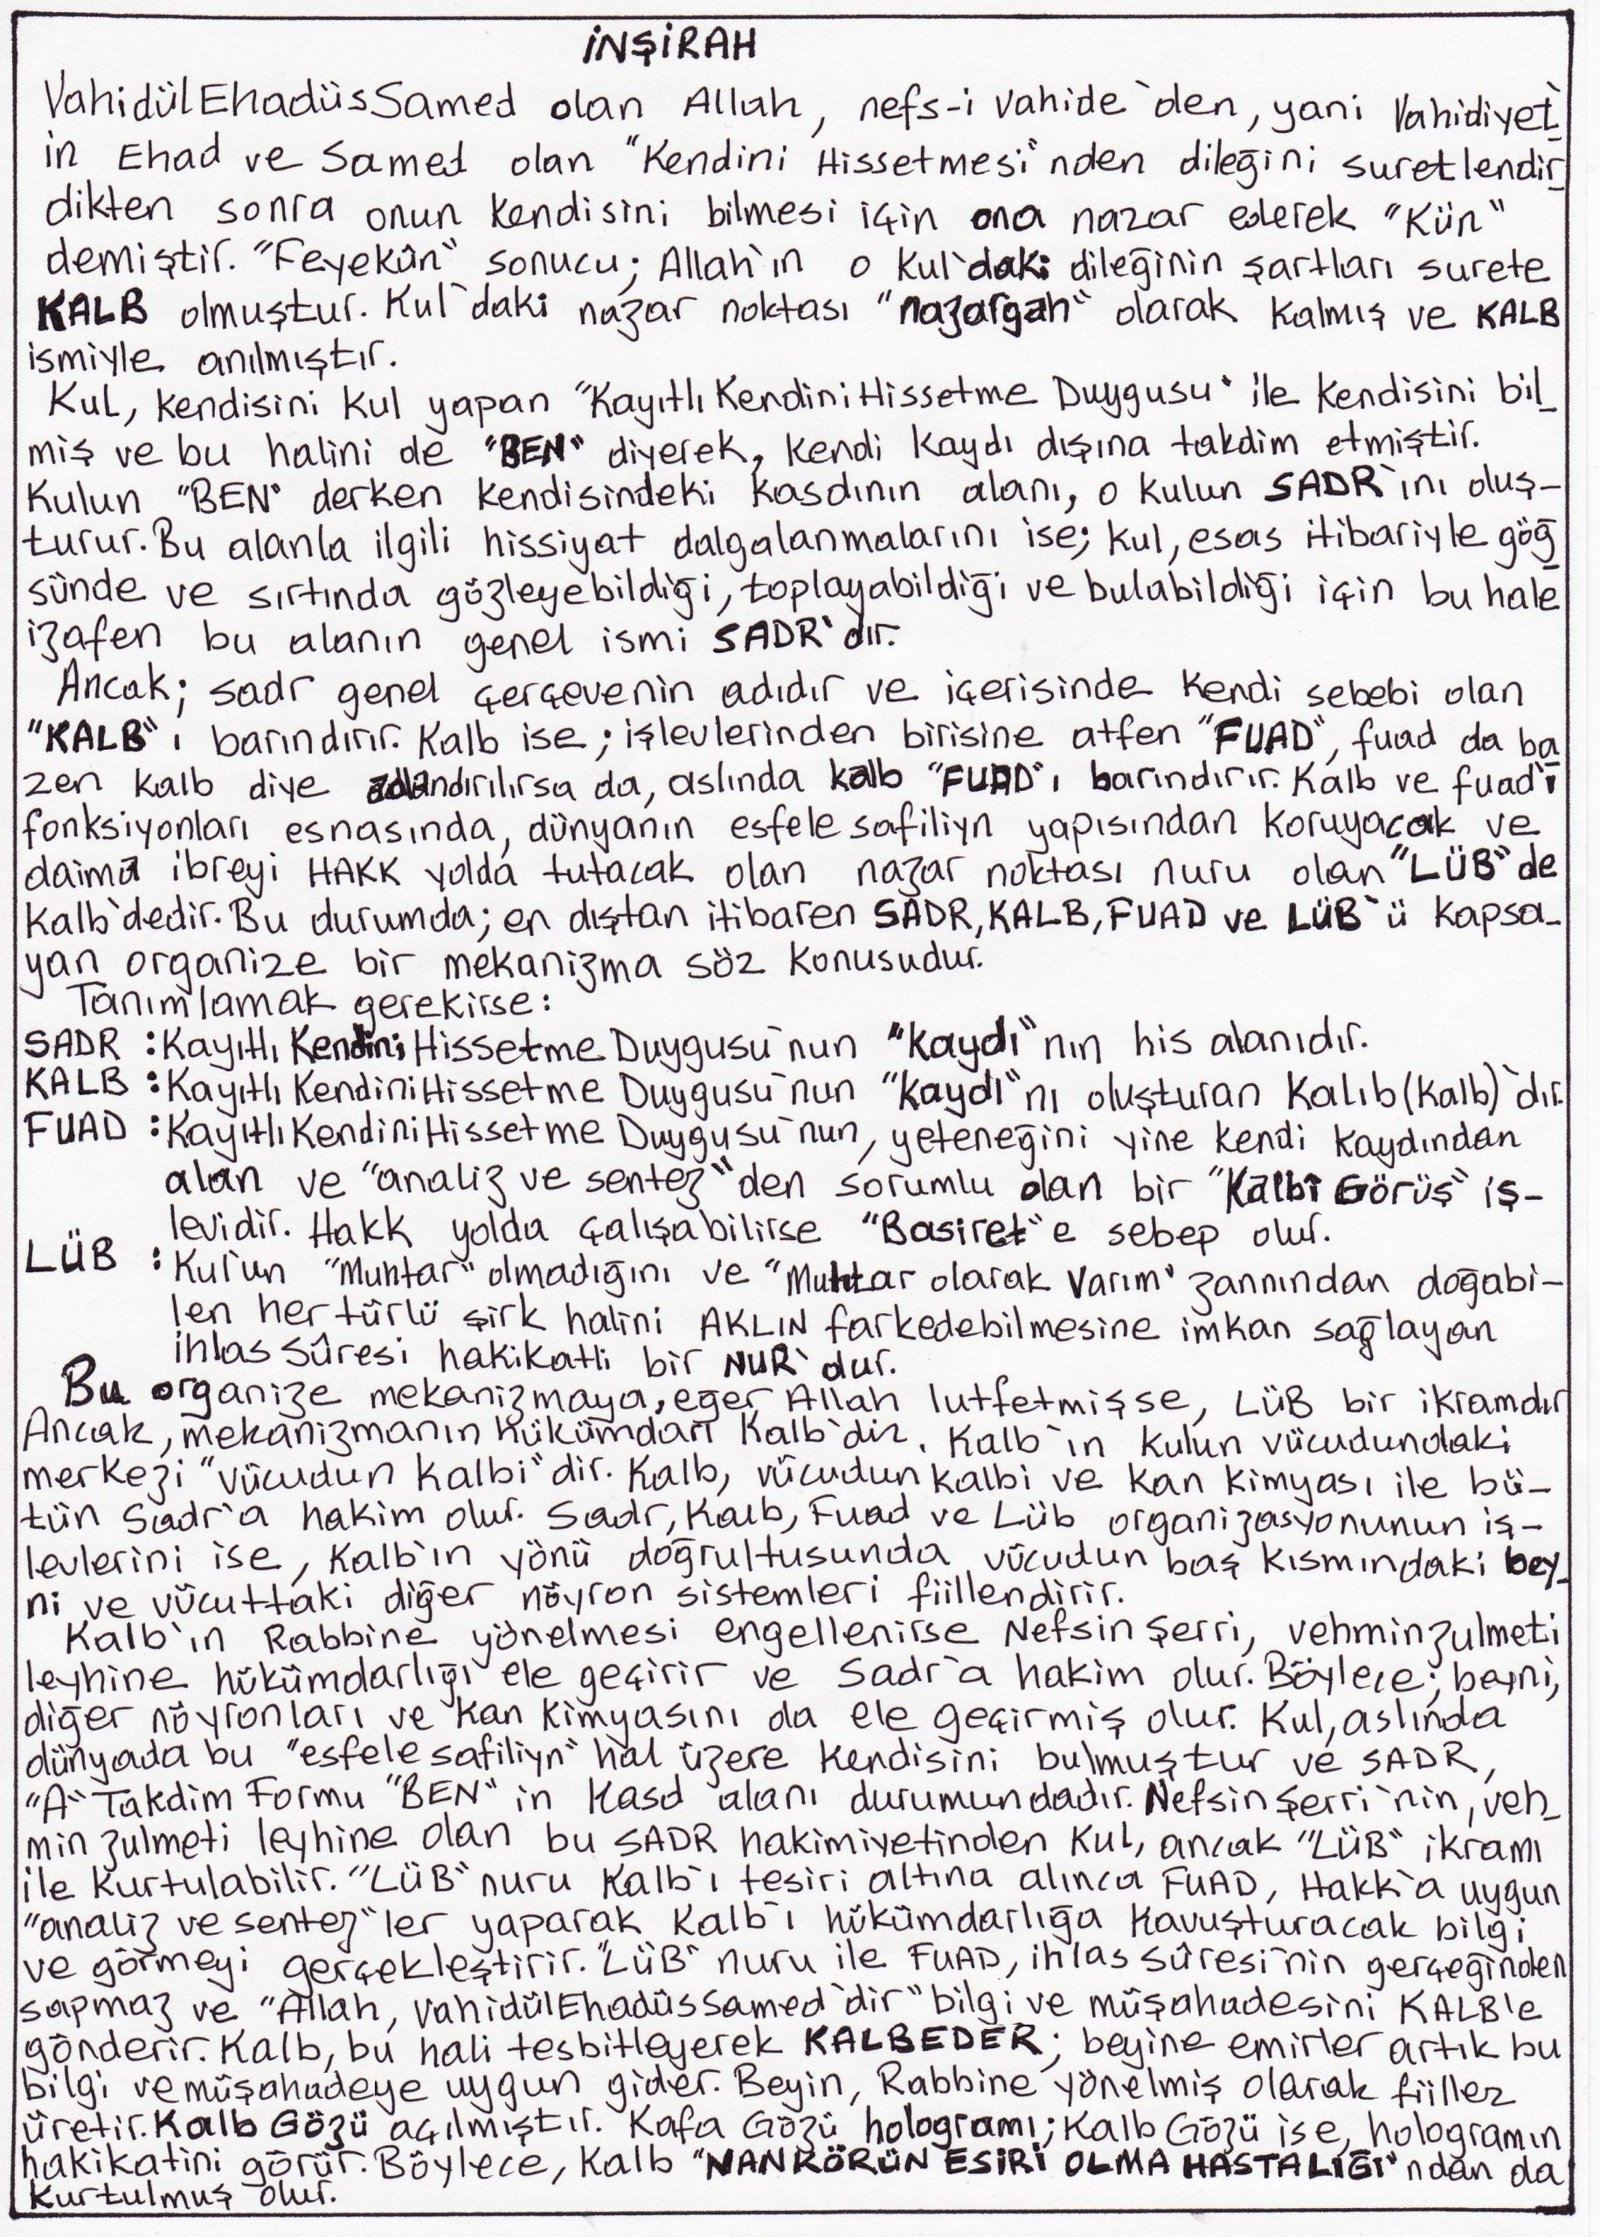 İNŞİRAH
VahidülEhadüsSamed olan Allah, nefs-i vahide`den, yani Vahidiyet`
in Ehad ve Samed olan "Kendini Hissetmesi"nden dileğini suretlendir_
dikten sonra onun kendisini bilmesi için ona nazar ederek "Kün"
demiştir. "Feyekûn" sonucu; Allah`ın o kul`daki dileğinin şartları surete
KALB olmuştur. Kul`daki nazar noktası "nazargah" olarak kalmış ve KALB
ismiyle anılmıştır.
Kul, kendisini kul yapan "Kayıtlı KendiniHissetme Duygusu" ile kendisini bil_
miş ve bu halini de "BEN" diyerek, kendi kaydı dışına takdim etmiştir.
Kulun "BEN" derken kendisindeki kasdının alanı, o kulun SADR`ını oluş-
turur. Bu alanla ilgili hissiyat dalgalanmalarını ise; kul, esas itibariyle göğ_
sünde ve sırtında gözleyebildiği, toplayabildiği ve bulabildiği için bu hale
izafen bu alanın genel ismi SADR`dır.
Ancak; sadr genel çerçevenin adıdır ve içerisinde kendi sebebi olan
"KALB"ı barındırır. Kalb ise; işlevlerinden birisine atfen "FUAD", fuad da ba_
zen kalb diye adlandırılırsa da, aslında kalb "FUAD"ı barındırır. Kalb ve fuad`ı
fonksiyonları esnasında, dünyanın esfele safiliyn yapısından koruyacak ve
daima ibreyi HAKK yolda tutacak olan nazar noktası nuru olan "LÜB" de
kalb`dedir. Bu durumda; en dıştan itibaren SADR, KALB, FUAD ve LÜB`ü kapsa_
yan organize bir mekanizma söz konusudur.
Tanımlamak gerekirse:
SADR : Kayıtlı Kendini Hissetme Duygusu`nun "kaydı"nın his alanıdır.
KALB : Kayıtlı KendiniHissetme Duygusu`nun "kaydı"nı oluşturan Kalıb(kalb)`dır.
FUAD : Kayıtlı KendiniHissetme Duygusu`nun, yeteneğini yine kendi kaydından
alan ve "analiz ve sentez"den sorumlu olan bir "Kalbî Görüş" iş-
levidir. Hakk yolda çalışabilirse "Basiret"e sebep olur.
LÜB : Kul`un "Muhtar" olmadığını ve "Muhtar olarak varım" zannından doğabi-
len her türlü şirk halini AKLIN farkedebilmesine imkan sağlayan
ihlas Sûresi hakikatli bir NUR`dur.
Bu organize mekanizmaya, eğer Allah lutfetmişse, LÜB bir ikramdır
Ancak, mekanizmanın hükümdarı Kalb`dir. Kalb`ın kulun vücudundaki
merkezi "vücudun kalbi"dir. Kalb, vücudun kalbi ve kan kimyası ile bü-
tün Sadr`a hakim olur. Sadr, Kalb, Fuad ve Lüb organizasyonunun iş-
levlerini ise, Kalb`ın yönü doğrultusunda vücudun baş kısmındaki bey_
ni ve vücuttaki diğer nöyron sistemleri fiillendirir.
Kalb`ın Rabbine yönelmesi engellenirse Nefsin Şerri, vehmin zulmeti
leyhine hükümdarlığı ele geçirir ve Sadr`a hakim olur. Böylece; beyni,
diğer nöyronları ve kan kimyasını da ele geçirmiş olur. Kul, aslında
dünyada bu "esfele safiliyn" hal üzere kendisini bulmuştur ve SADR,
"A" Takdim Formu "BEN"in Kasd alanı durumundadır. Nefsin Şerri`nin, veh_
min zulmeti leyhine olan bu SADR hakimiyetinden Kul, ancak "LÜB" ikramı
ile kurtulabilir. "LÜB" nuru Kalb`ı tesiri altına alınca FUAD, Hakk`a uygun
"analiz ve sentez"ler yaparak Kalb`ı hükümdarlığa kavuşturacak bilgi
ve görmeyi gerçekleştirir. "LÜB" nuru ile FUAD, ihlas sûresi`nin gerçeğinden
sapmaz ve "Allah, VahidülEhadüsSamed`dir" bilgi ve müşahadesini KALB'e
gönderir. Kalb, bu hali tesbitleyerek KALBEDER; beyine emirler artık bu
bilgi ve müşahadeye uygun gider. Beyin, Rabbine yönelmiş olarak fiiller
üretir. Kalb Gözü açılmıştır. Kafa Gözü hologramı; Kalb Gözü ise, hologramın
hakikatini görür. Böylece, Kalb "NANKÖRÜN ESİRİ OLMA HASTALIĞI"ndan da
kurtulmuş olur.